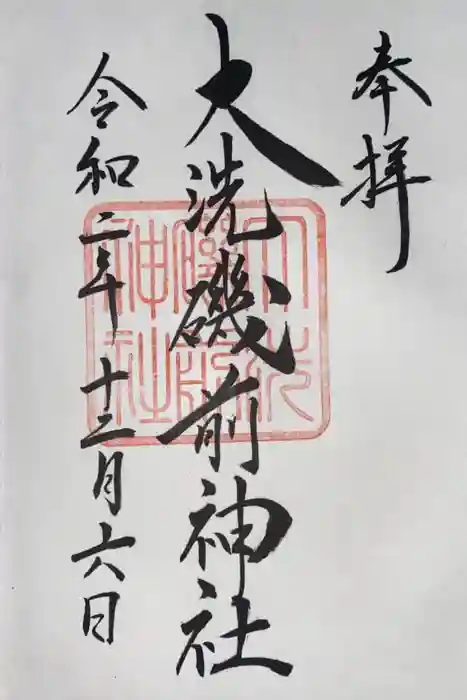 奉拝
大洗磯前神社
令和二年十二月六日
大洗
磯前
神社